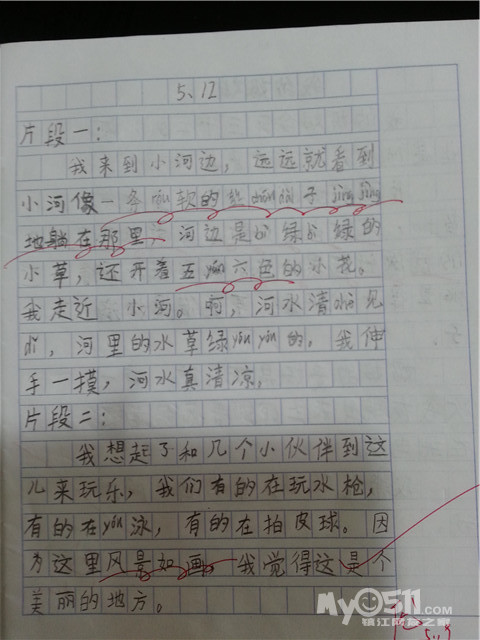 5.12
片段一：
我来到小河边，远远就看到
小河像一条róu软的丝chóu dài子jìng jìng
地躺在那里。河边是bì绿bì绿的
小草，还开着五yán六色的小花。
我走近小河。啊，河水清chè见
dǐ，河里的水草绿yōu yōu的，我伸
手一摸，河水真清凉。
片段二：
我想起了和几个小伙伴到这
儿来玩乐，我们有的在玩水枪，
有的在yóu泳，有的在拍皮球。因
为这里风景如画。我觉得这是个
美丽的地方。
My0511.com
镇江网友之家